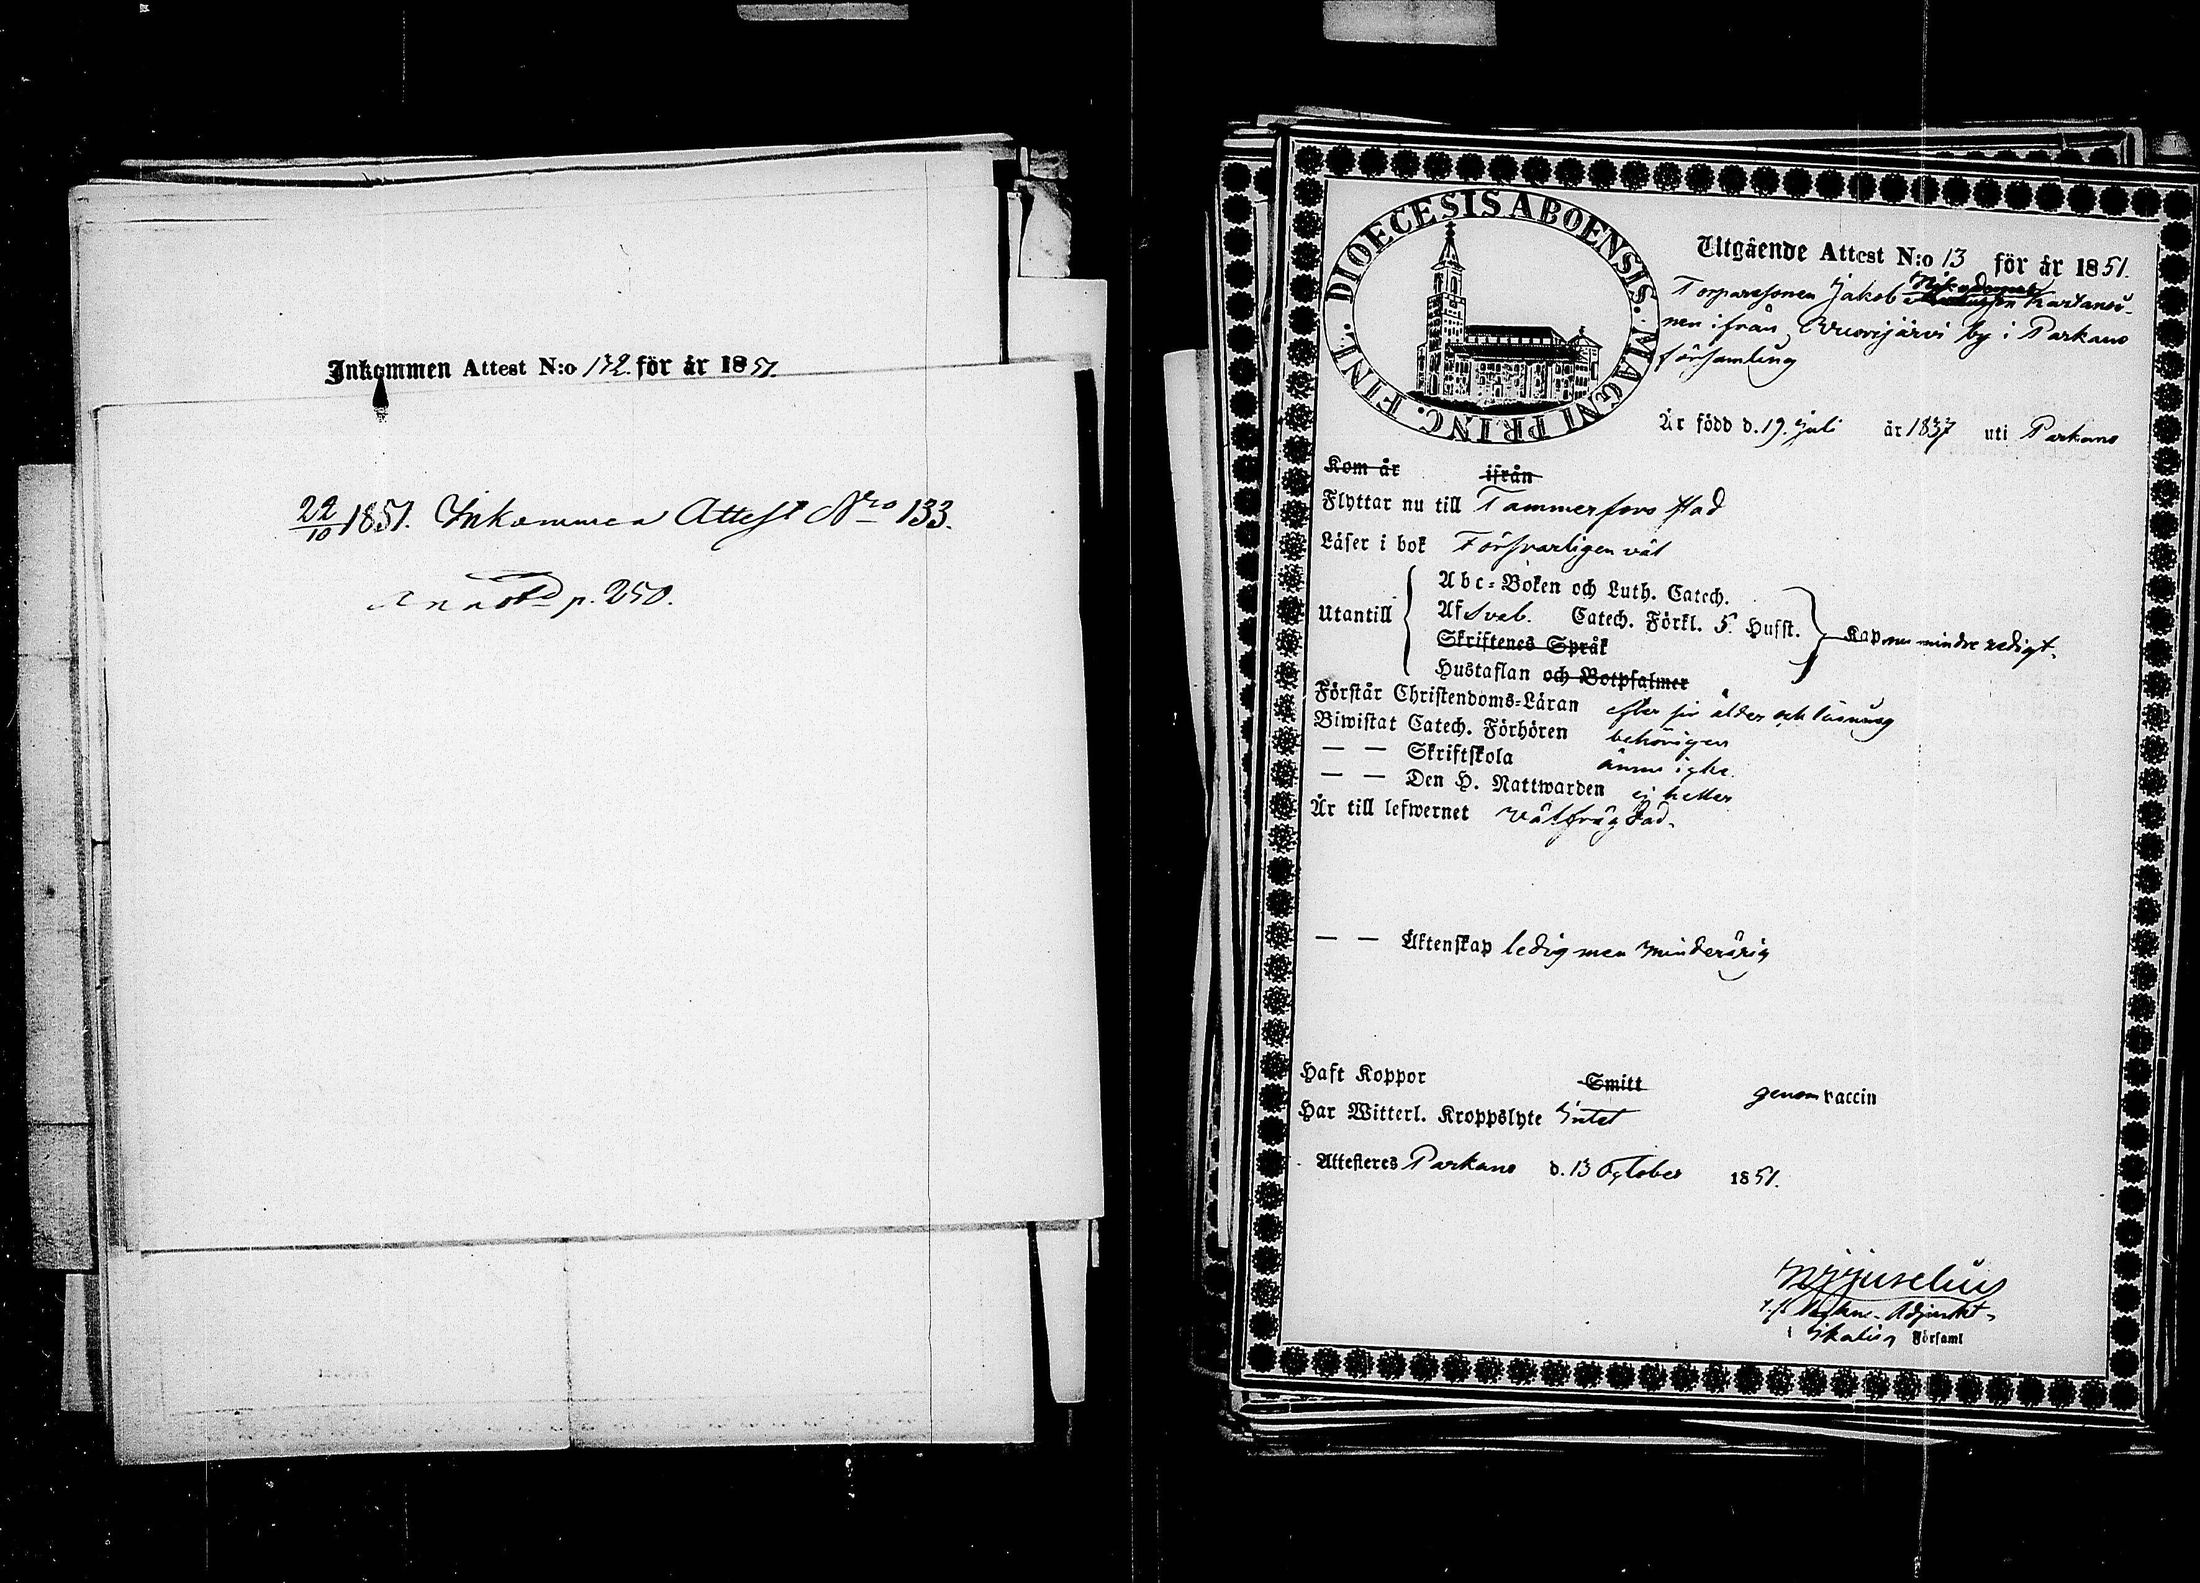 Inkommen Attest N:o 132. för år 1851.
22/10 1851. Inkommen Attest Nro 133.
Annotd p. 250.
DIOECESIS ABOENSIS. MAGNI PRINC. FINL.
Utgående Attest N:o 13 för år 1851.
Torparesonen Jakob Nikodemus
nen ifrån by i Parkano
församling
Är född d. 19. Juli år 1837 uti Parkano
Kom år ifrån
Flyttar nu till Tammerfors stad
Läser i bok Försvarligen väl
Utantill
Abc-Boken och Luth. Catech.
Af Sveb. Catech. Förkl. 5. Hufst.
Skriftenes Språk
Hustaflan och Botpsalmer
mindre redigt.
Förstår Christendoms-Läran efter sin ålder och läsning
Biwistat Catech. Förhören behörigen
— — Skriftskola ännu icke.
— — Den H. Nattwarden ej heller
Är till lefwernet välfrägdad.
— — Äktenskap ledig men minderårig
Haft Koppor Smitt genom vaccin
Har Witterl. Kroppslyte Intet
Attesteres Parkano d. 13 October 1851.
Adjunkt
i Ikalis Församl